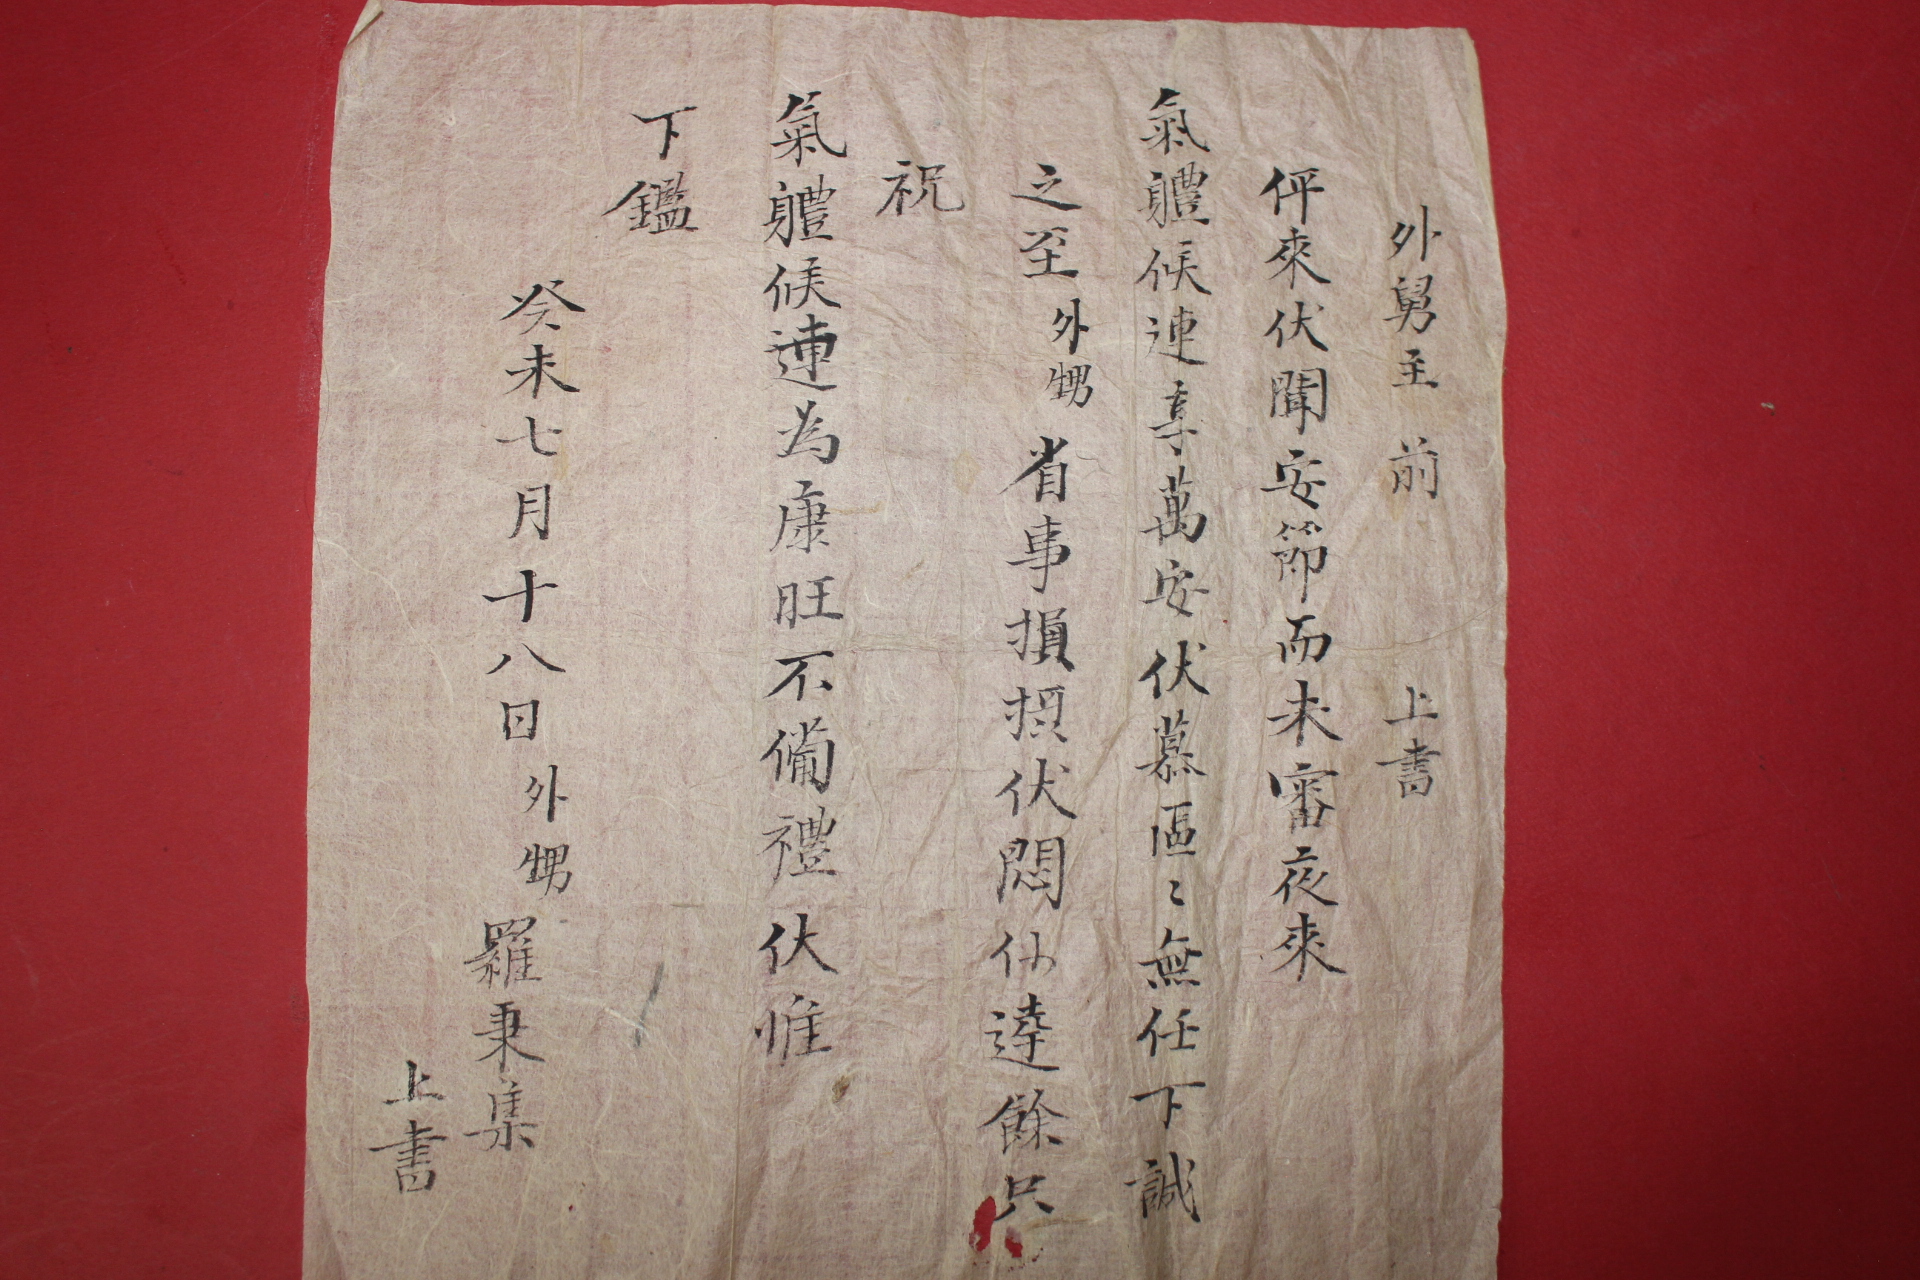 外舅主 前 上書
伻來伏聞安節而未審夜來
氣軆候連享萬安伏慕區〻無任下誠
之至外甥省事損損伏悶仆達餘只
祝
氣軆候連為康旺不備禮伏惟
下鑑
癸未七月十八日外甥羅秉集
上書